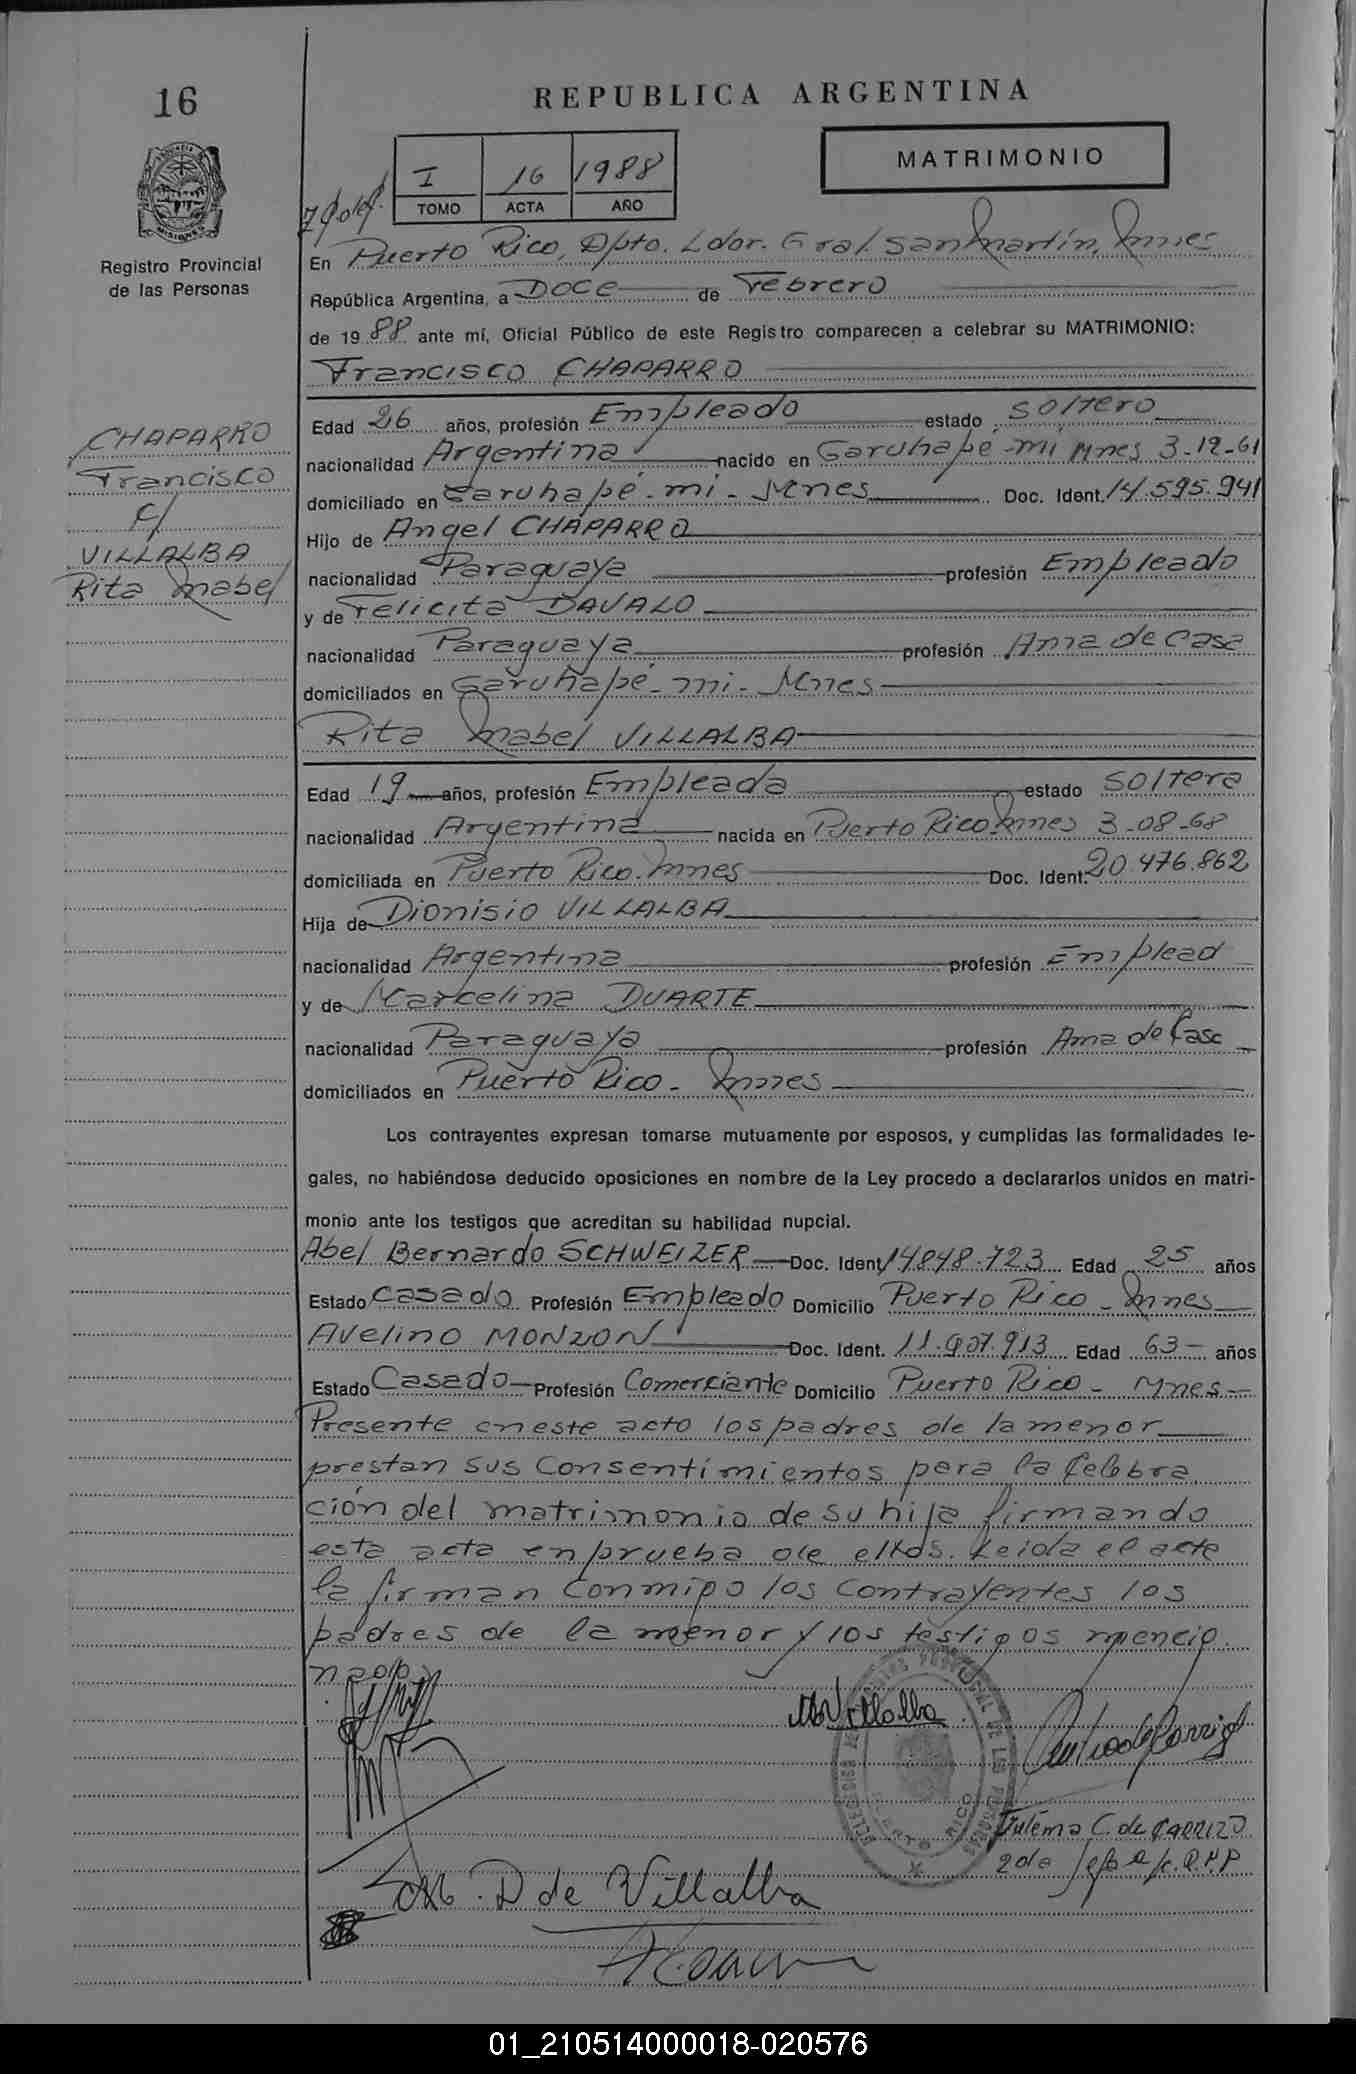 16
REPUBLICA ARGENTINA
MATRIMONIO
I 16 1988
TOMO ACTA AÑO
PROVINCIA DE MISIONES
Registro Provincial
de las Personas
En Puerto Rico, Dpto. Ldor. Gral San Martín, Mnes
República Argentina, a DOCE de Febrero
de 1988 ante mí, Oficial Público de este Registro comparecen a celebrar su MATRIMONIO:
Francisco CHAPARRO
CHAPARRO
Francisco
c/
VILLALBA
Rita Mabel
Edad 26 años, profesión Empleado estado soltero
nacionalidad Argentina nacido en Garuhapé-mi Mnes 3-12-61
domiciliado en Garuhapé-mi-Mnes Doc. Ident. 14.595.941
Hijo de Angel CHAPARRO
nacionalidad Paraguaya profesión Empleado
y de Felicita DAVALO
nacionalidad Paraguaya profesión Ama de Casa
domiciliados en Garuhapé-mi-Mnes
Rita Mabel VILLALBA
Edad 19 años, profesión Empleada estado soltera
nacionalidad Argentina nacida en Puerto Rico Mnes 3-08-68
domiciliada en Puerto Rico. Mnes Doc. Ident. 20.476.862
Hija de Dionisio VILLALBA
nacionalidad Argentina profesión Emplead
y de Marcelina DUARTE
nacionalidad Paraguaya profesión Ama de Casa
domiciliados en Puerto Rico - Mnes
Los contrayentes expresan tomarse mutuamente por esposos, y cumplidas las formalidades le-
gales, no habiéndose deducido oposiciones en nombre de la Ley procedo a declararlos unidos en matri-
monio ante los testigos que acreditan su habilidad nupcial.
Abel Bernardo SCHWEIZER Doc. Ident. 14848.723 Edad 25 años
Estado Casado Profesión Empleado Domicilio Puerto Rico - Mnes
Avelino MONZON Doc. Ident. 11.907.913 Edad 63 años
Estado Casado Profesión Comerciante Domicilio Puerto Rico - Mnes
Presente en este acto los padres de la menor
prestan sus Consentimientos para la Celebra
ción del matrimonio de su hija firmando
esta acta en prueba de ellos. Leida el acta
la firman Conmigo los contrayentes los
padres de la menor y los testigos mencio
nado
Villalba
M. D de Villalba
C. de CARRIZO
PUERTO RICO
01_210514000018-020576